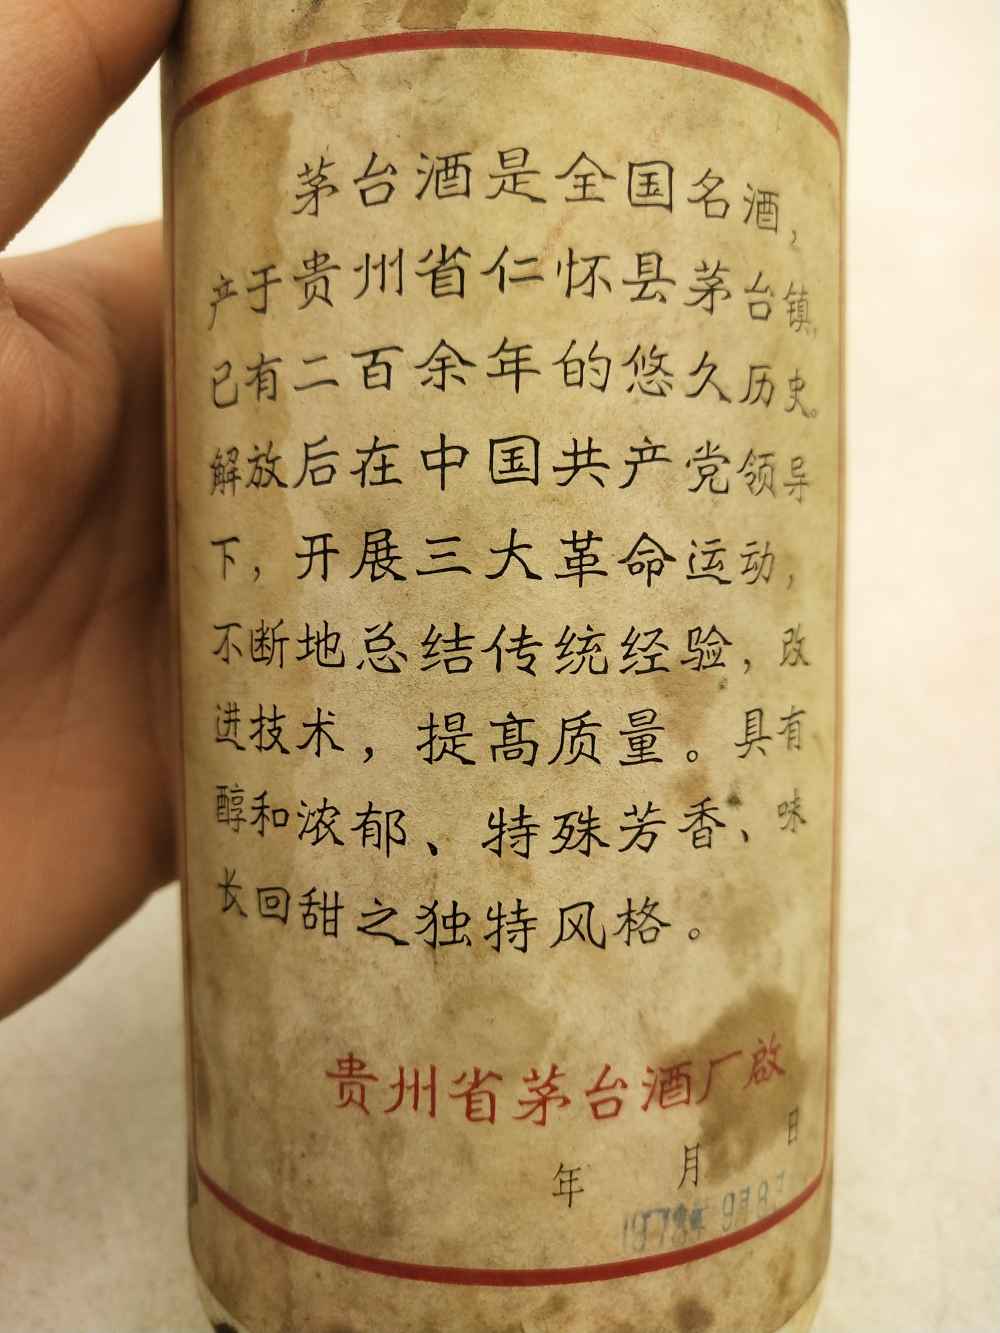 茅台酒是全国名酒，
产于贵州省仁怀县茅台镇，
已有二百余年的悠久历史。
解放后在中国共产党领导
下，开展三大革命运动，
不断地总结传统经验，改
进技术，提高质量。具有
醇和浓郁、特殊芳香、味
长回甜之独特风格。
贵州省茅台酒厂啟
年 月 日
9月8日